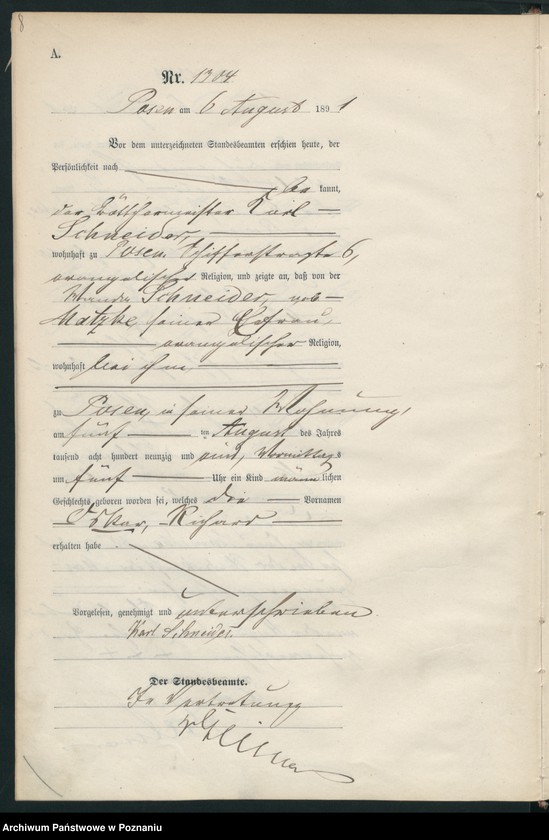 8
A.
Nr. 1304
Posen am 6 August 1891
Vor dem unterzeichneten Standesbeamten erschien heute, der
Persönlichkeit nach
be kannt,
der Böttchermeister Karl
Schneider,
wohnhaft zu Posen, Schifferstraße 6,
evangelischer Religion, und zeigte an, daß von der
Wanda Schneider, geb.
Matzke, seiner Ehefrau,
evangelischer Religion,
wohnhaft bei ihm
zu Posen, in seiner Wohnung,
am fünf ten August des Jahres
tausend acht hundert neunzig und eins, Vormittags
um fünf Uhr ein Kind männlichen
Geschlechts geboren worden sei, welches die Vornamen
Oskar, Richard
erhalten habe
Vorgelesen, genehmigt und unterschrieben
Karl Schneider.
Der Standesbeamte.
In Vertretung
Archiwum Państwowe w Poznaniu